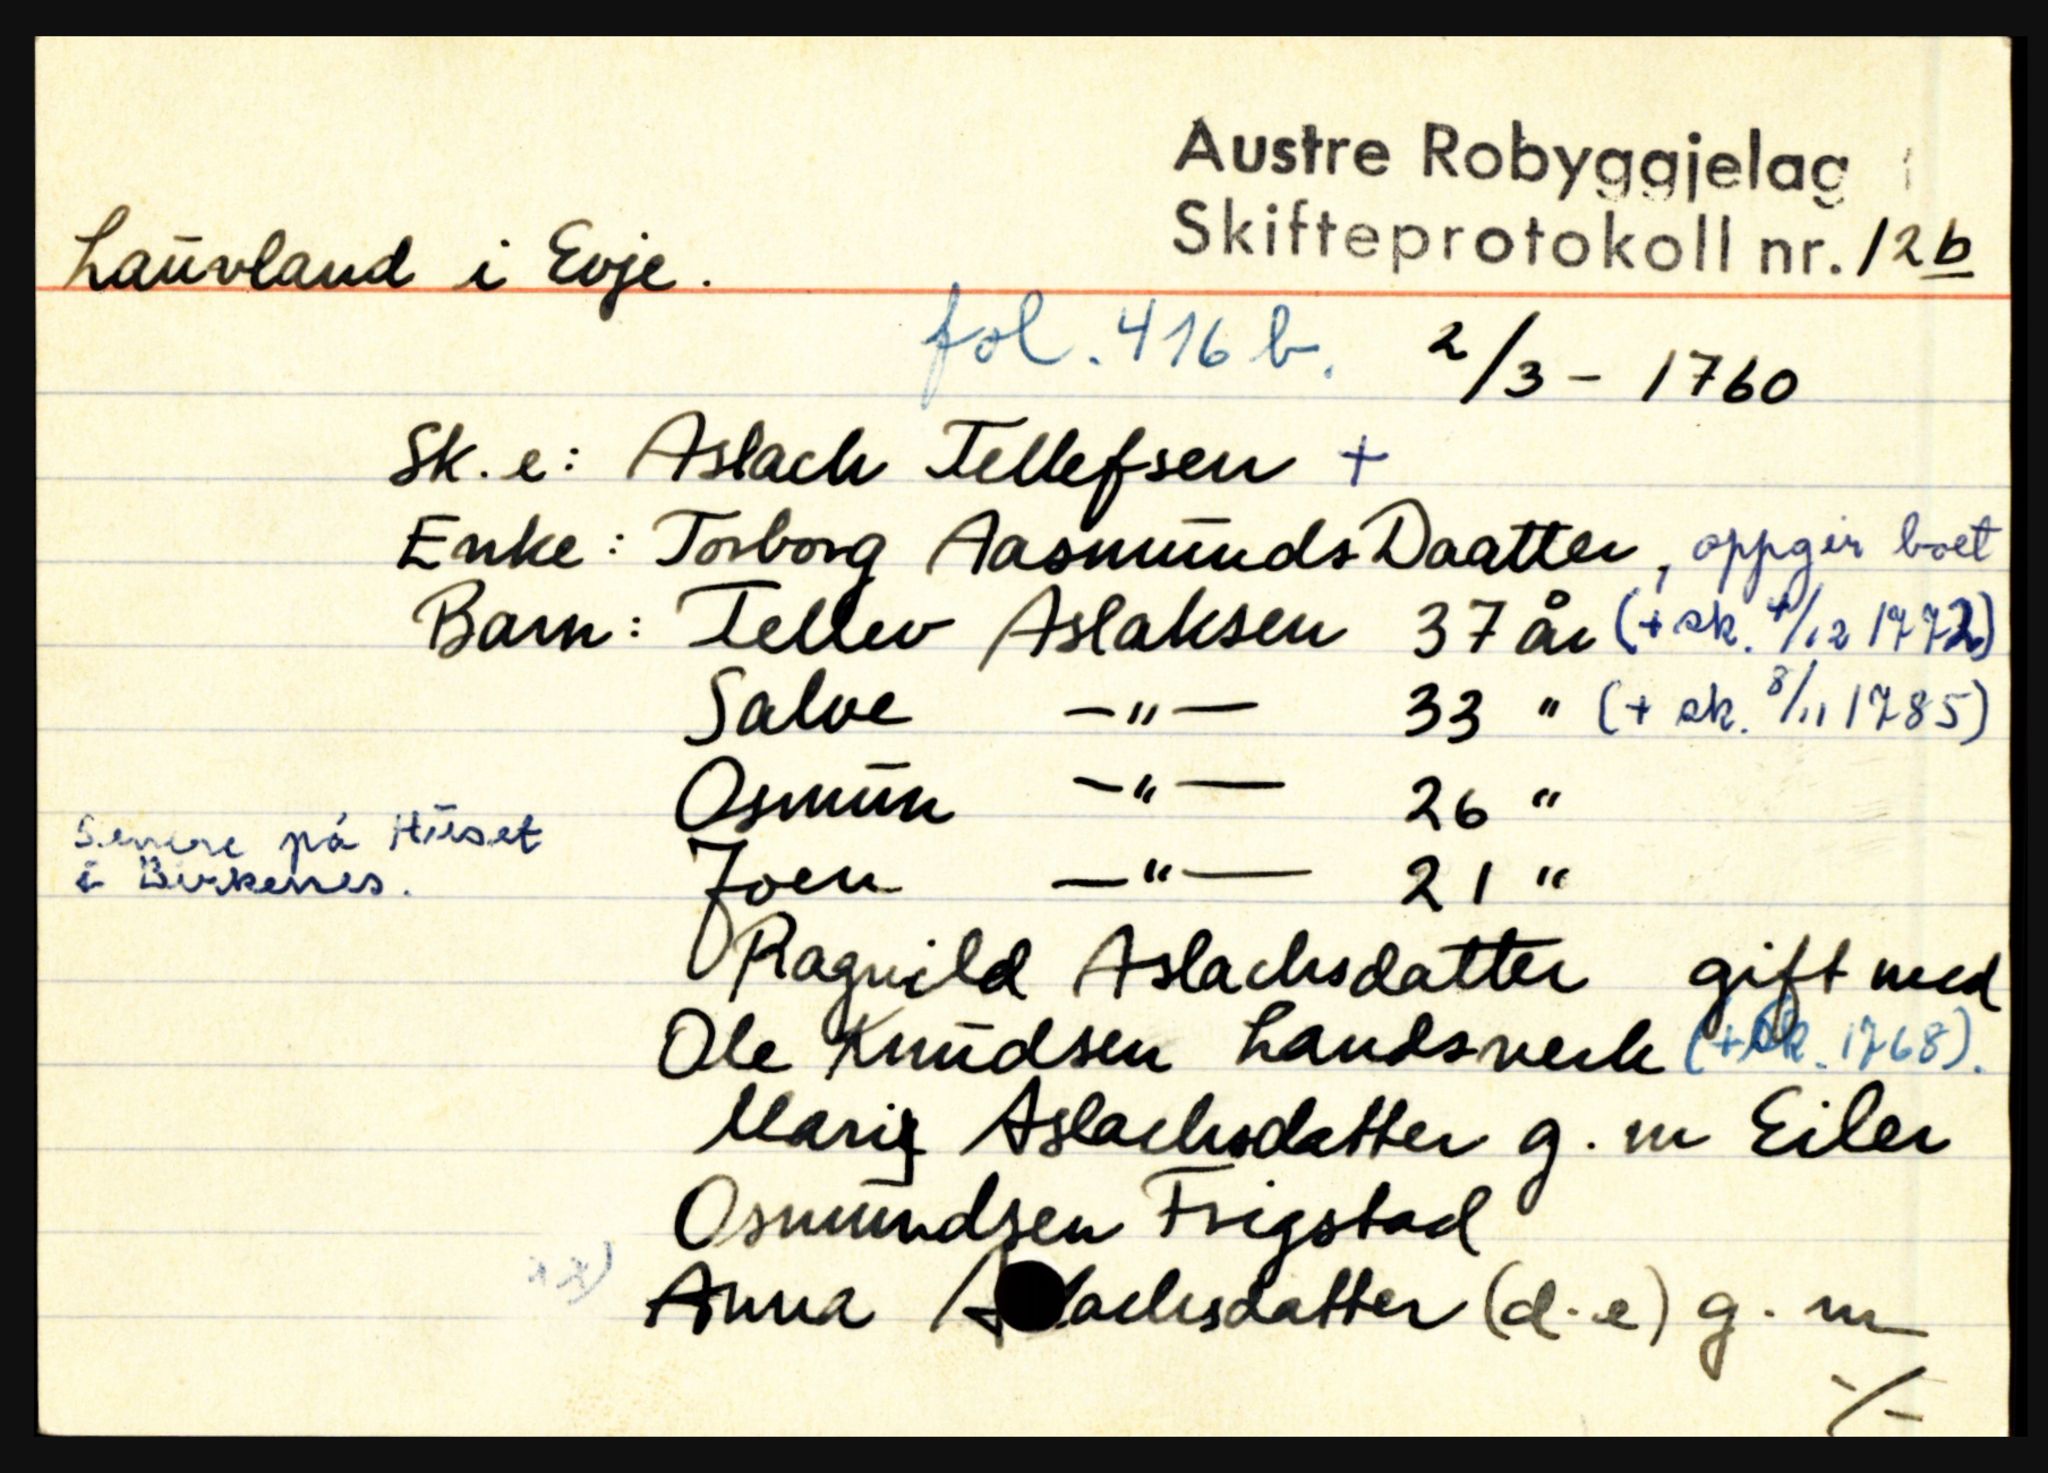 Austre Robyggjelag
Skifteprotokoll nr. 12b
Lauvland i Evje.
fol. 416 b. 2/3 - 1760
Sk. e: Aslach Tellefsen +
Enke: Torborg Aasmunds Daatter, oppgir boet
Barn: Tellev Aslaksen 37 år (+ sk. 4/12 1772)
Salve -"- 33 " (+ sk. 8/11 1785)
Osmun -"- 26 "
Senere på Huset
i Birkenes.
Joen -"- 21 "
Ragnild Aslachsdatter gift med
Ole Knudsen Landsverk (+ sk. 1768).
Mari Aslachsdatter g. m Eiler
Osmundsen Frigstad
xx) Anna A lachsdatter (d. e) g. m
-/-